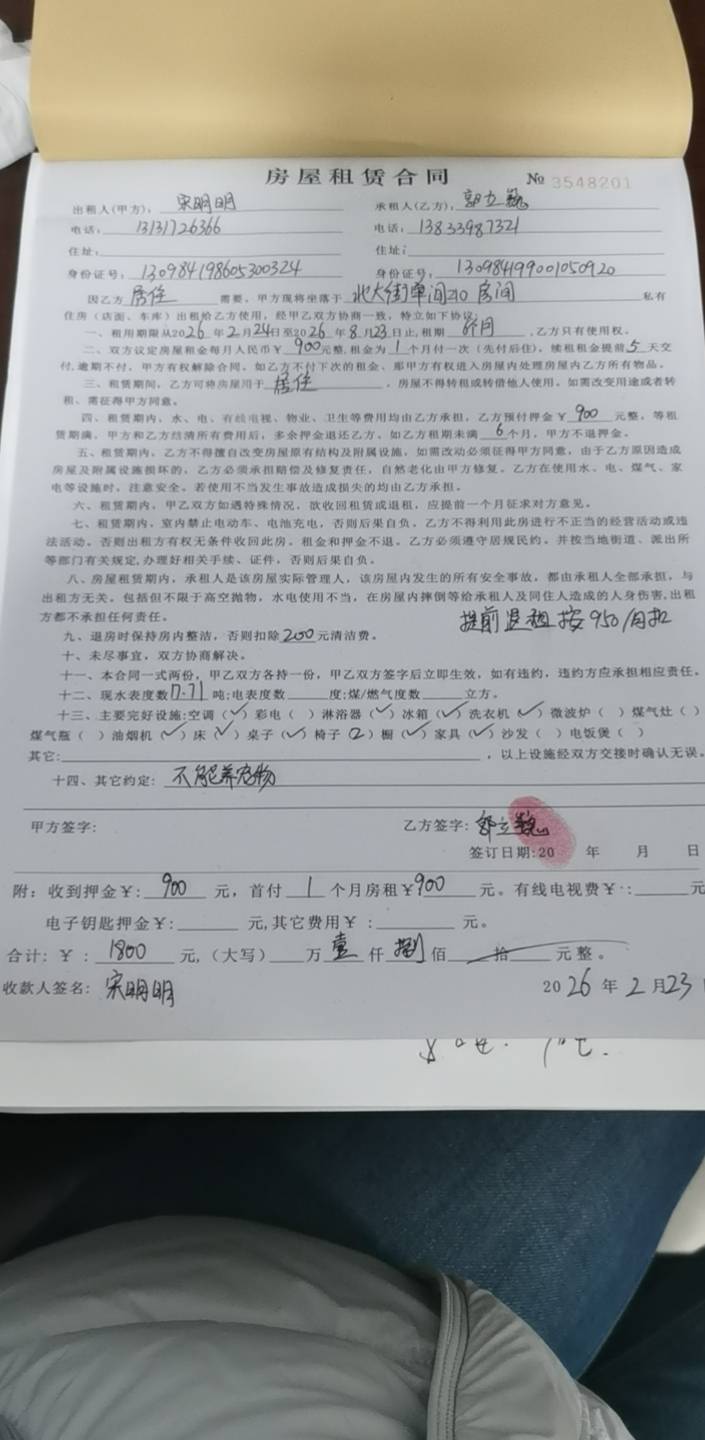 房屋租赁合同 № 3548201
出租人(甲方): 宋明明 承租人(乙方): 郭立巍
电话: 13131726366 电话: 13833987321
住址: 住址:
身份证号: 130984198605300324 身份证号: 130984199001050920
因乙方 居住 需要，甲方现将坐落于 北大街单间210房间 私有
住房（店面、车库）出租给乙方使用，经甲乙双方协商一致，特立如下协议：
一、租用期限从2026年2月24日至2026年8月23日止,租期 6个月 ,乙方只有使用权。
二、双方议定房屋租金每月人民币￥ 900 元整,租金为 1 个月付一次（先付后住），续租租金提前 5 天交
付,逾期不付，甲方有权解除合同。如乙方不付下次的租金、那甲方有权进入房屋内处理房屋内乙方所有物品。
三、租赁期间，乙方可将房屋用于 居住 ，房屋不得转租或转借他人使用。如需改变用途或者转
租、需征得甲方同意。
四、租赁期内，水、电、有线电视、物业、卫生等费用均由乙方承担，乙方预付押金￥ 900 元整，等租
赁期满，甲方和乙方结清所有费用后，多余押金退还乙方，如乙方租期未满 6 个月，甲方不退押金。
五、租赁期内，乙方不得擅自改变房屋原有结构及附属设施，如需改动必须征得甲方同意，由于乙方原因造成
房屋及附属设施损坏的，乙方必须承担赔偿及修复责任，自然老化由甲方修复。乙方在使用水、电、煤气、家
电等设施时，注意安全。若使用不当发生事故造成损失的均由乙方承担。
六、租赁期内，甲乙双方如遇特殊情况，欲收回租赁或退租，应提前一个月征求对方意见。
七、租赁期内，室内禁止电动车、电池充电，否则后果自负。乙方不得利用此房进行不正当的经营活动或违
法活动。否则出租方有权无条件收回此房。租金和押金不退。乙方必须遵守居规民约。并按当地街道、派出所
等部门有关规定,办理好相关手续、证件，否则后果自负。
八、房屋租赁期内，承租人是该房屋实际管理人，该房屋内发生的所有安全事故，都由承租人全部承担，与
出租方无关。包括但不限于高空抛物，水电使用不当，在房屋内摔倒等给承租人及同住人造成的人身伤害,出租
方都不承担任何责任。 提前退租按950/月扣
九、退房时保持房内整洁，否则扣除 200 元清洁费。
十、未尽事宜，双方协商解决。
十一、本合同一式两份，甲乙双方各持一份，甲乙双方签字后立即生效，如有违约，违约方应承担相应责任。
十二、现水表度数 吨;电表度数 度;煤/燃气度数 立方。
十三、主要完好设施:空调（✓）彩电（ ）淋浴器（✓）冰箱（✓）洗衣机（✓）微波炉（ ）煤气灶（ ）
煤气瓶（ ）油烟机（✓）床（✓）桌子（✓）椅子（2）橱（✓）家具（✓）沙发（ ）电饭煲（ ）
其它: ，以上设施经双方交接时确认无误。
十四、其它约定: 不能养宠物
甲方签字: 乙方签字: 郭立巍
签订日期:20 年 月 日
附：收到押金￥: 900 元，首付 1 个月房租￥900 元。有线电视费￥: 元
电子钥匙押金￥: 元,其它费用￥: 元。
合计: ￥: 1800 元,（大写） 万 壹 仟 捌 佰 拾 元整。
收款人签名: 宋明明 2026年2月23